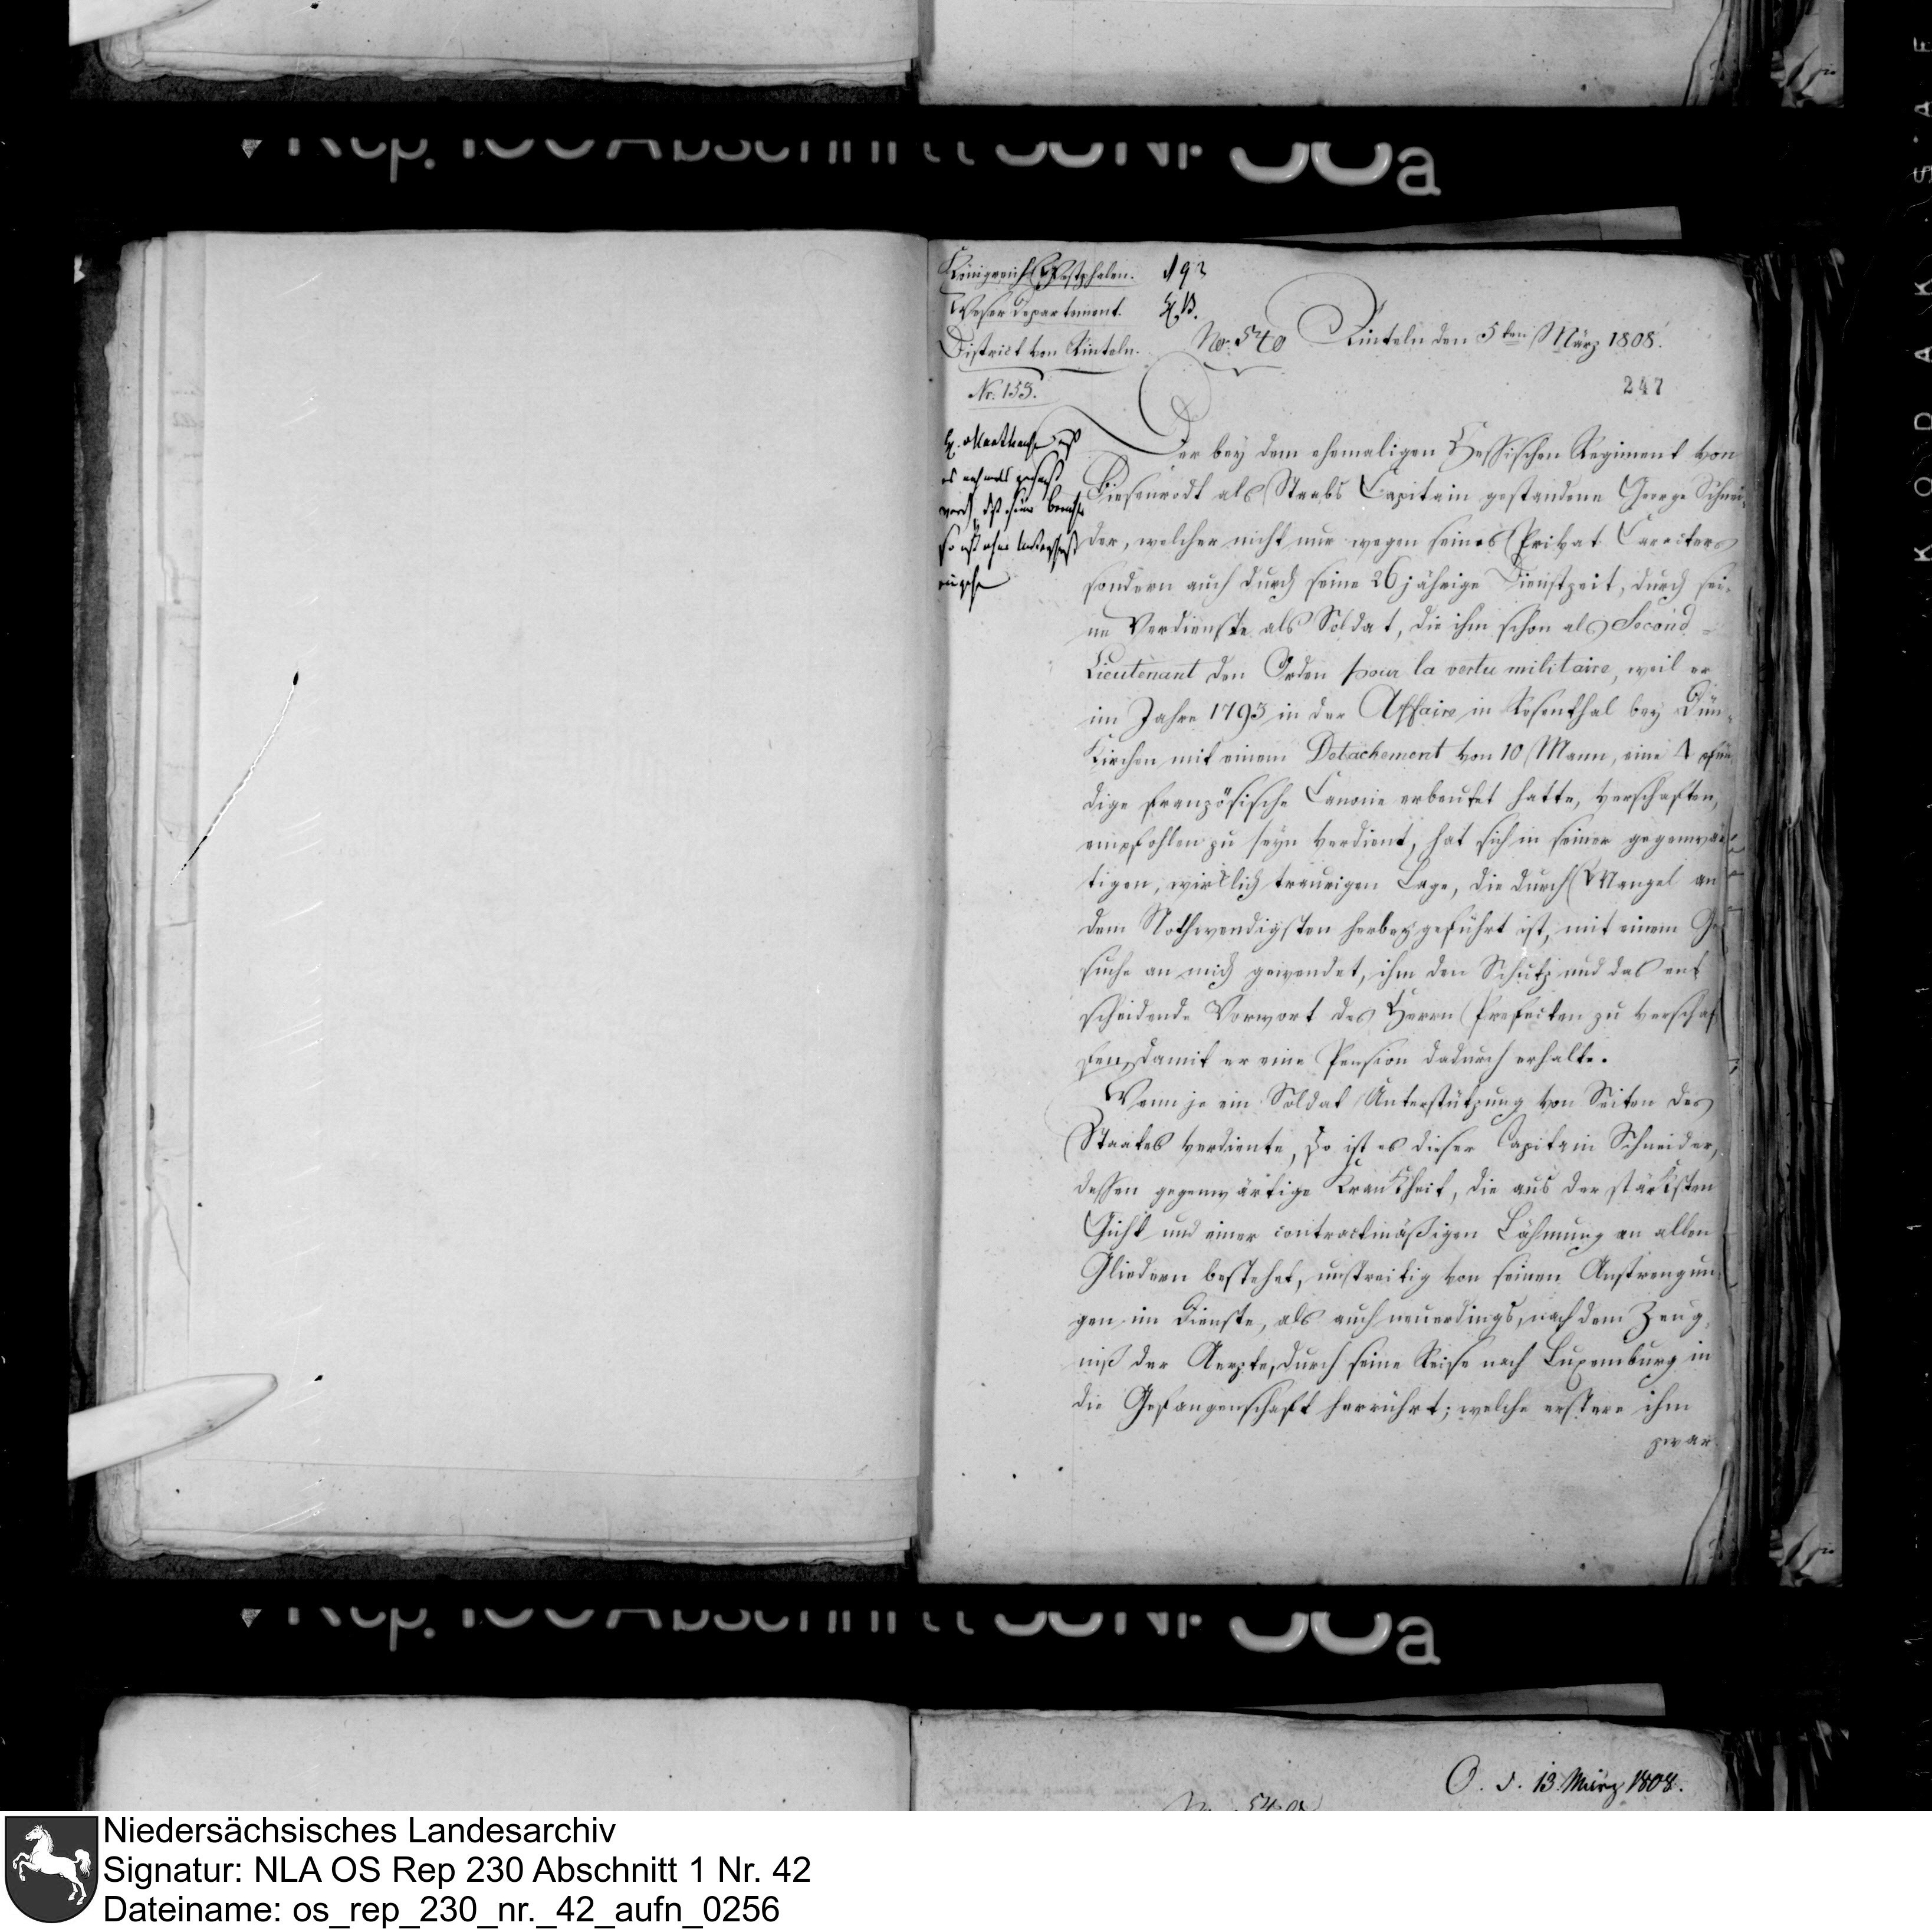 Königreich Westphalen.
Weser Departement.
District von Rinteln.
Nr. 153.
192
No. 540
Rinteln den 5ten März 1808.
247
Der bey dem ehemaligen Hessischen Regiment von
Biesenrodt als Staabs Capitain gestandene George Schnei-
der, welcher nicht nur wegen seines Privat Caracters
sondern auch durch seine 26 jährige Dienstzeit, durch sei-
ne Verdienste als Soldat, die ihm schon als Second-
Lieutenant den Orden pour la vertu militaire, weil er
im Jahre 1793 in der Affaire in Rosenthal bey Dün-
kirchen mit einem Detachement von 10 Mann, eine 4 pfün-
dige französische Canone erbeutet hatte, verschaften,
empfohlen zu seyn verdient, hat sich in seiner gegenwär
tigen, wirklich traurigen Lage, die durch Mangel an
dem Nothwendigsten herbeygeführt ist, mit einem Ge
suche an mich gewendet, ihm den Schutz und das ent
scheidende Vorwort des Herrn Prefecten zu verschaf
fen, damit er eine Pension dadurch erhalte.
Wenn je ein Soldat Unterstützung von Seiten des
Staates verdiente, so ist es dieser Capitain Schneider,
dessen gegenwärtige Krankheit, die aus der stärksten
Gicht und einer contractmäßigen Lähmung an allen
Gliedern bestehet, unstreitig von seinen Anstrengun-
gen im Dienste, als auch neuerdings, nach dem Zeug-
niß der Aerzte, durch seine Reise nach Luxemburg in
die Gefangenschaft herrührt; welche erstere ihm
zwar
O. d. 13. März 1808.
Niedersächsisches Landesarchiv
Signatur: NLA OS Rep 230 Abschnitt 1 Nr. 42
Dateiname: os_rep_230_nr._42_aufn_0256